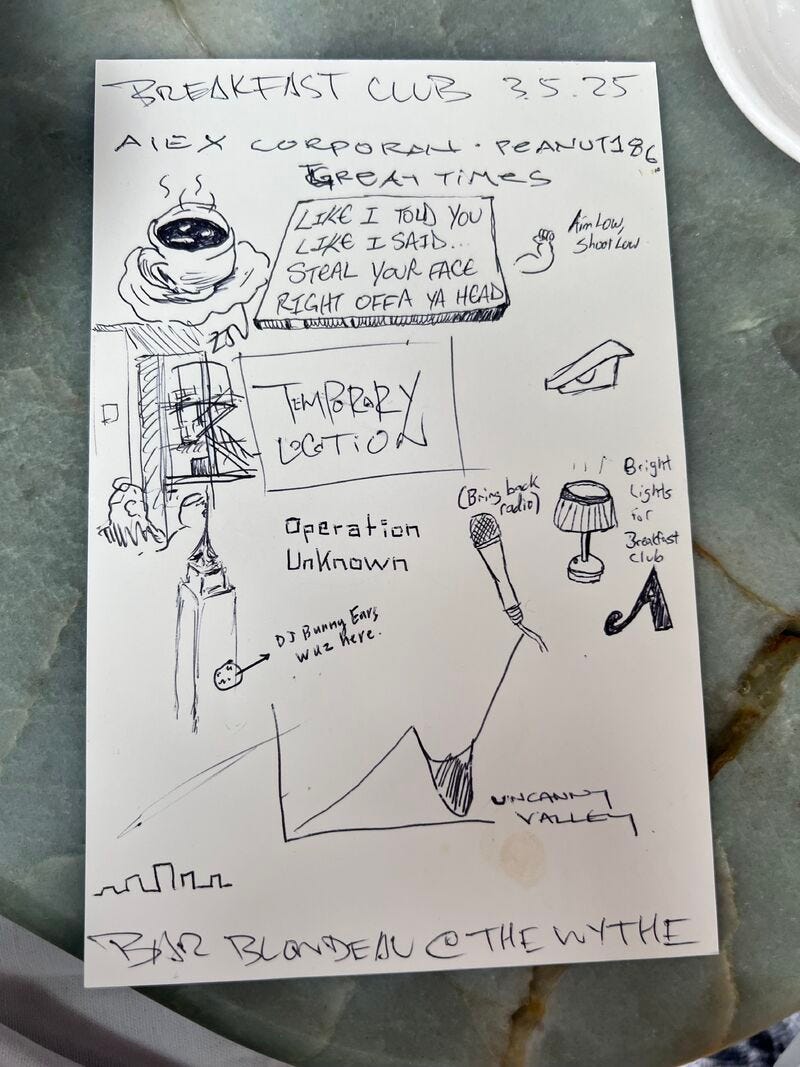 BREAKFAST CLUB 3.5.25
ALEX CORPORAN · PEANUT186
GREAT TIMES
LIKE I TOLD YOU
LIKE I SAID...
STEAL YOUR FACE
RIGHT OFFA YA HEAD
Aim Low,
Shoot Low
TEMPORARY
LOCATION
(Bring back
radio)
Bright
Lights
for
Breakfast
Club
A
Operation
Unknown
DJ Bunny Ears
wuz here.
UNCANNY
VALLEY
BAR BLONDEAU @ THE WYTHE